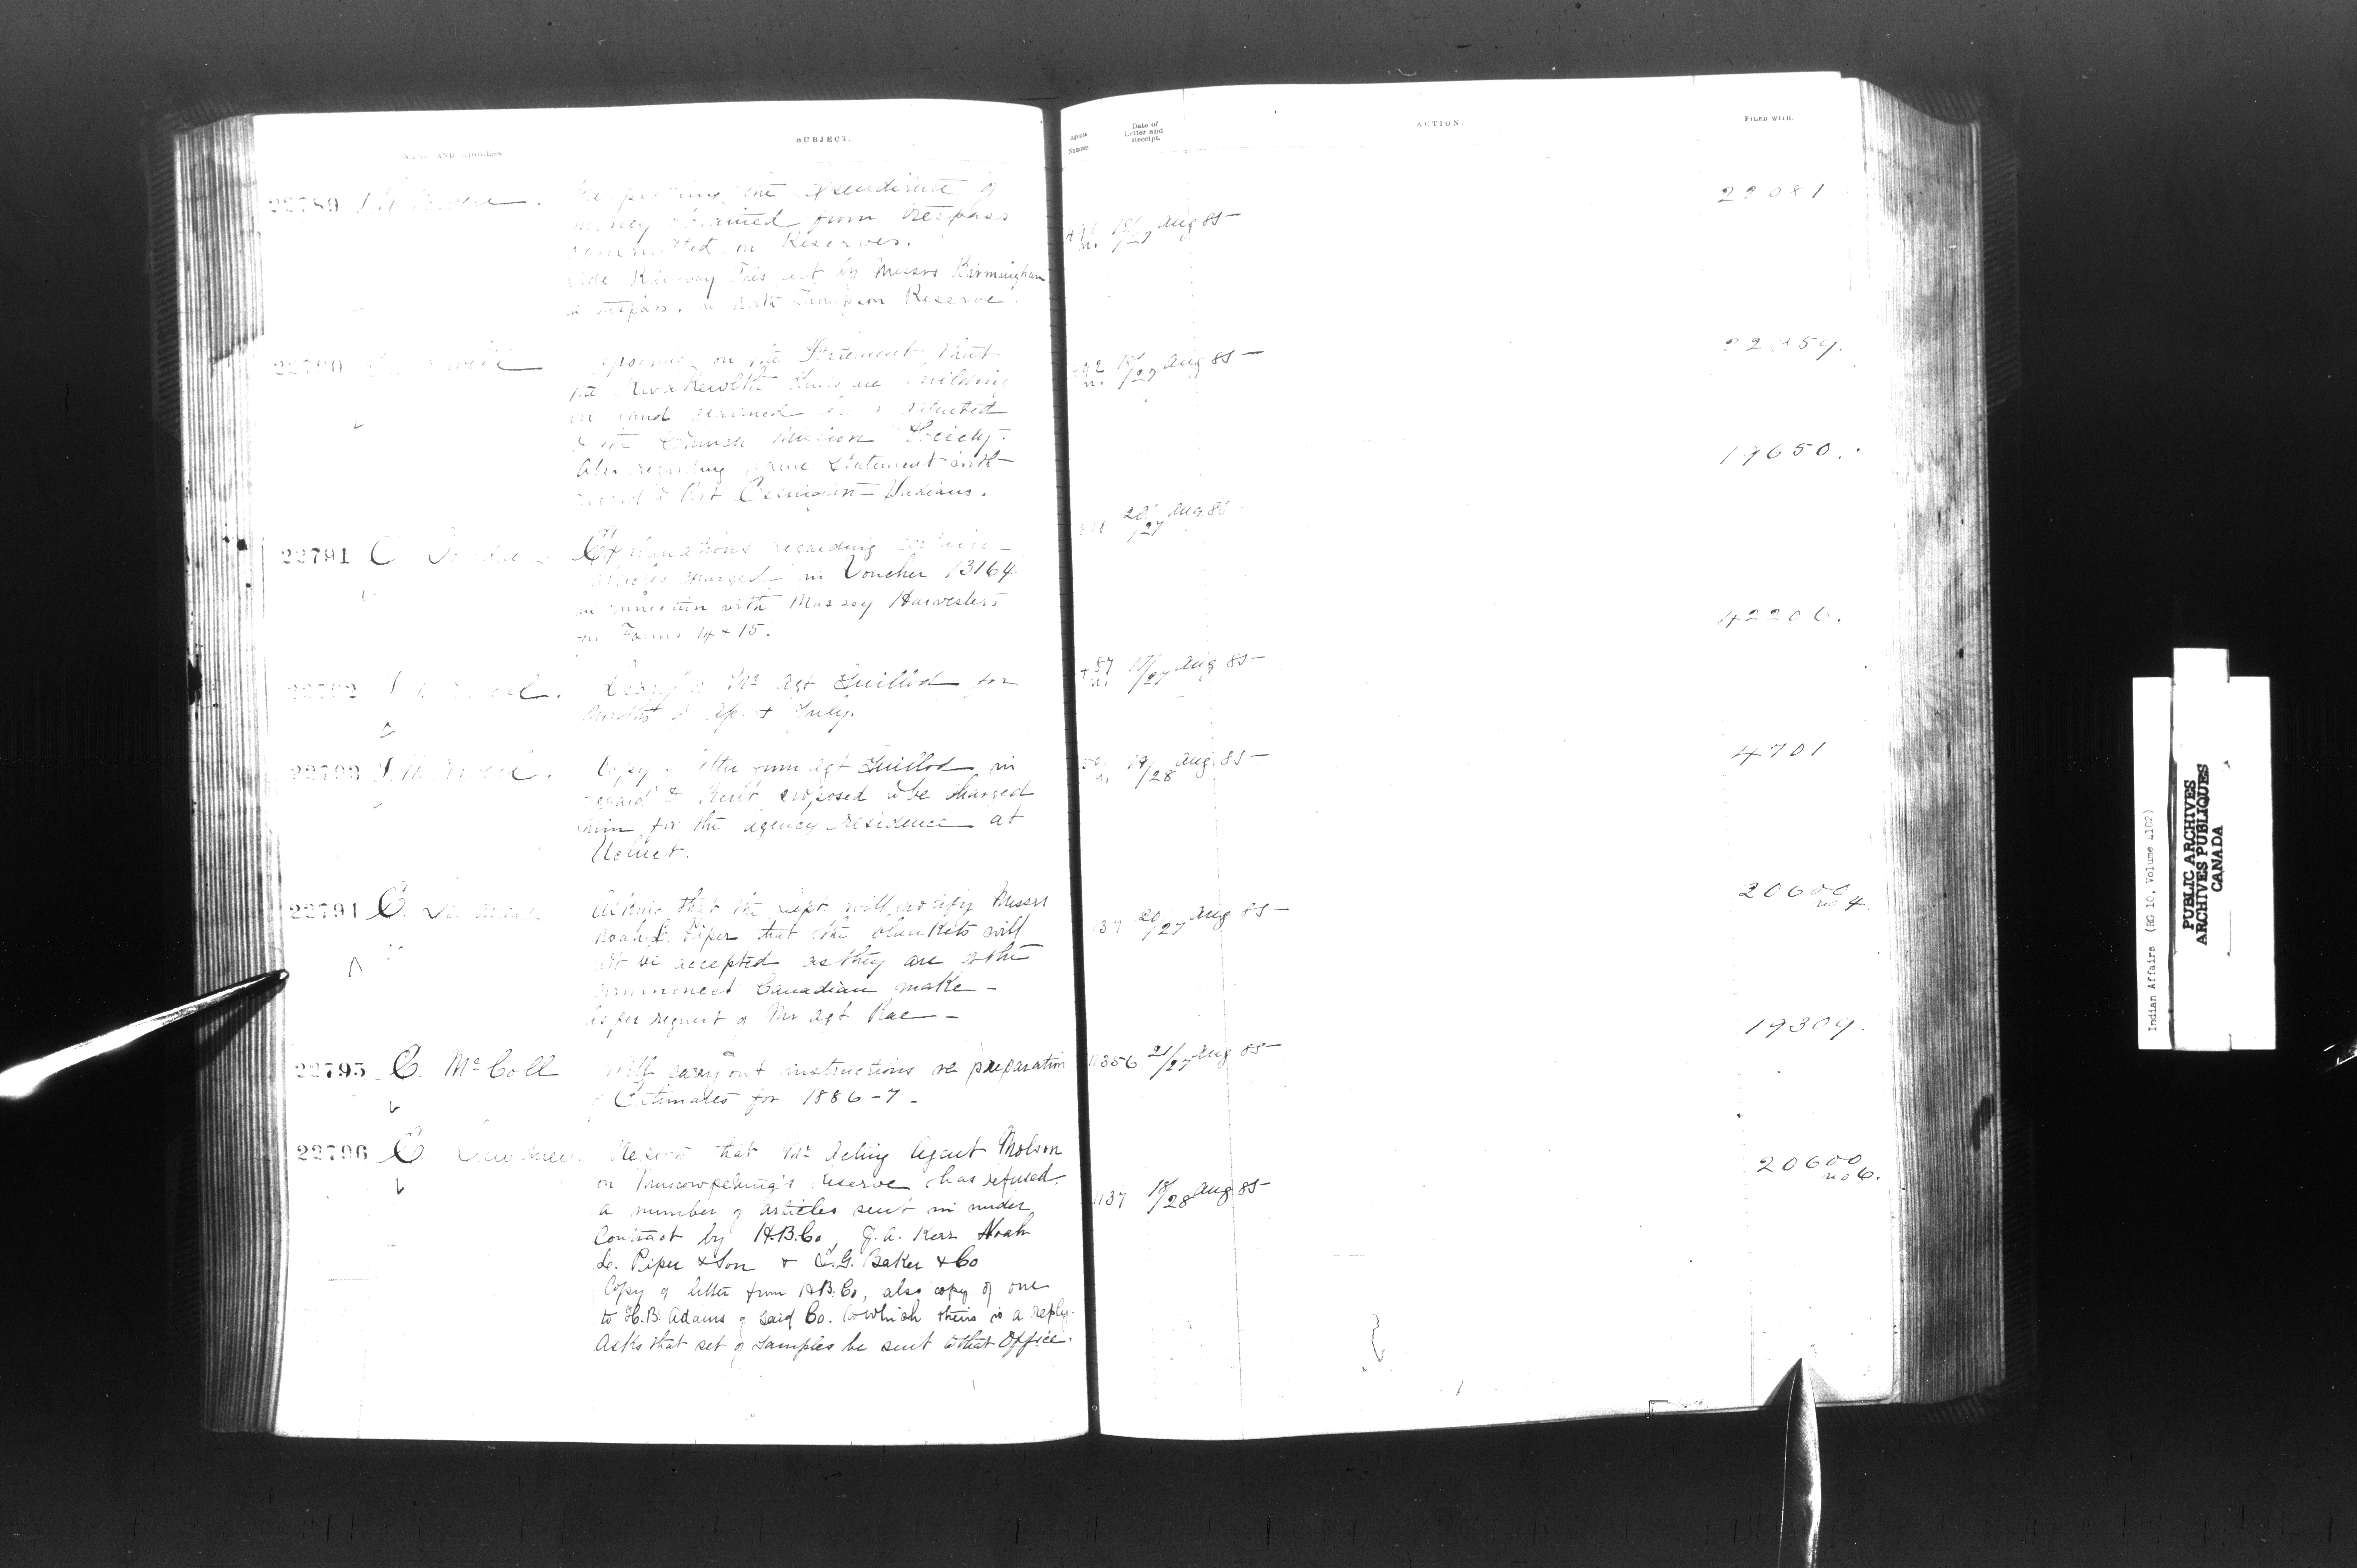 NAME AND ADDRESS.
SUBJECT.
Agents Number.
Date of Letter and Receipt.
ACTION.
FILED WITH.
22789
Respecting the expenditure of
money obtained from trespass
committed on Reserves.
vide Railway Ties cut by Messrs Birmingham
in trespass, on North Thompson Reserve
15/27 Aug 85
22081
22790
on the Statement that
the are building
on land claimed
to the Church Mission Society.
Also regarding same Statement with
regard to Port Essington Indians.
n. 18/27 Aug 85
22359.
22791 C
Explanations regarding certain
articles charged in Voucher 13164
in connection with Massey Harvesters
for Farms 14 & 15.
20/27 Aug 85
19650.
22792
Diary of Mr Agt Guillod for
months of Ap. & July.
+87 n. 17/27 Aug 85
42206.
22793
Copy of letter from Agt Guillod in
regard to Rent proposed to be charged
him for the agency residence at
Ucluet.
n. 19/28 Aug 85
4701
22794 E.
Asking that the Dept will notify Messrs
Noah L. Piper that the blankets will
not be accepted as they are of the
commonest Canadian make -
As per request of Mr Agt Rae -
137 20/27 Aug 85
20600 no 4.
22795 E. McColl
Will carry out instructions re preparation
of Estimates for 1886-7 -
11356 21/27 Aug 85
19309.
22796 E. Dewdney
Reports that Mr Acting Agent Molson
on Muscowpetung's Reserve has refused
a number of articles sent in under
Contract by H.B.Co, J.A. Kerr Noah
L. Piper & Son & I.G. Baker & Co
Copy of letter from H.B.Co, also copy of one
to H.B. Adams of said Co. to which theirs is a reply.
Asks that set of samples be sent to that Office.
1137 18/28 Aug 85
20600 no 6.
Indian Affairs (RG 10, Volume 4102)
PUBLIC ARCHIVES
ARCHIVES PUBLIQUES
CANADA